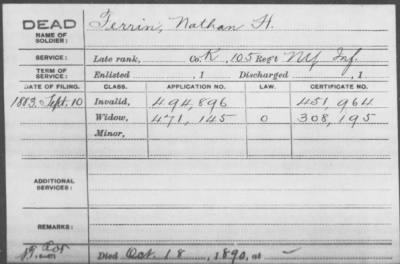 DEAD Terrin, Nathan H.
NAME OF SOLDIER:
SERVICE: Late rank, Co. K, 105 Reg't NY Inf.
TERM OF SERVICE: Enlisted , 1 Discharged , 1
DATE OF FILING. CLASS. APPLICATION NO. LAW. CERTIFICATE NO.
1883. Sept. 10 Invalid, 494,896 451,964
Widow, 471,145 O 308,195
Minor,
ADDITIONAL SERVICES:
REMARKS:
Died Oct. 18, 1890, at —